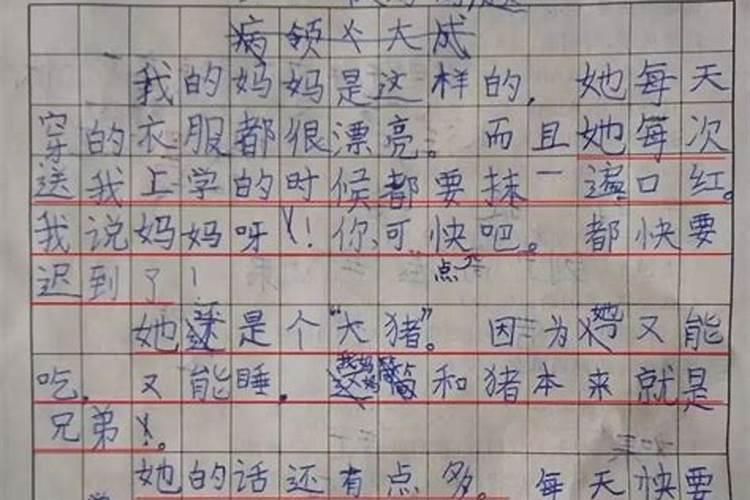 病领人大成
我的妈妈是这样的，她每天
穿的衣服都很漂亮。而且她每次
送我上学的时候都要抹一遍口红。
我说妈妈呀！你可快点吧。都快要
迟到了！
她还是个"大猪"。因为她又能
吃，又能睡。我妈妈简和猪本来就是
兄弟。
她的话还有点多。每天快要